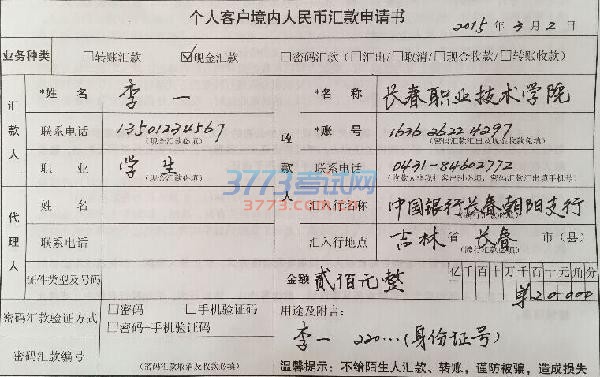 个人客户境内人民币汇款申请书
2015年3月2日
业务种类 □转账汇款 ☑现金汇款 □密码汇款(□汇出/□取消/□现金收款/□转账收款)
汇款人 *姓名 李一 收款人 *名称 长春职业技术学院
联系电话 13501234567 (现金汇款必填) *账号 1636 2622 4297 (密码汇款汇出及现金收款免填)
职业 学生 (现金汇款必填) 联系电话 0431-84602772
代理人 姓名 汇入行名称 中国银行长春朝阳支行
联系电话 汇入行地点 吉林省 长春 市(县)
证件类型及号码 金额 贰佰元整 亿千百十万千百十元角分
¥20000
密码汇款验证方式 □密码 □手机验证码 □密码+手机验证码 用途及附言:
李一 220…(身份证号)
密码汇款编号 (密码汇款取消及收款必填) 温馨提示:不给陌生人汇款、转账,谨防被骗,造成损失
3773考试网
3773.com